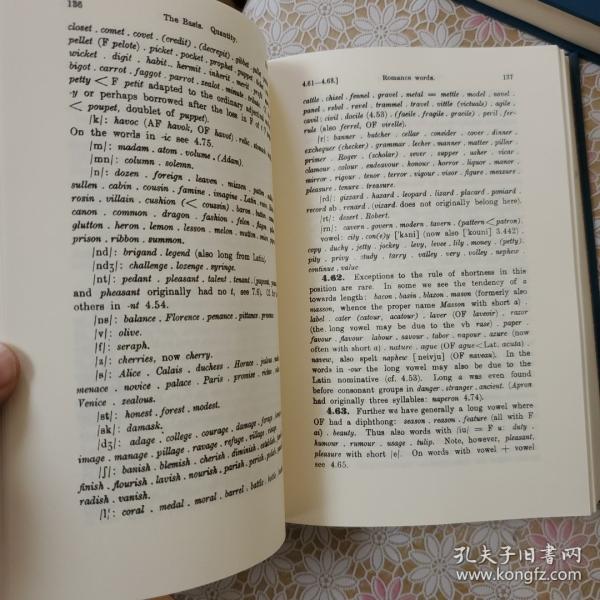 136
The Basis. Quantity.
closet . comet . covet . (credit) . (decrepit) . gibbet .
pellet (F pelote) . picket . pocket . prophet .
wicket . digit . habit . hermit . inherit . merit .
bigot . carrot . faggot . parrot . zealot . minute
petty < F petit adapted to the ordinary adjectival
-y or perhaps borrowed after the loss in F of t
< poupet, doublet of puppet).
|k|: havoc (AF havok, OF havot) . relic . stomach
On the words in -ic see 4.75.
|m|: madam . atom . volume . (Adam).
|mn|: column . solemn.
|n|: dozen . foreign . leaven . mizzen .
sullen . cabin . cousin . famine . imagine . Latin .
rosin . villain . cushion (< coussin) . baron . button .
canon . common . dragon . fashion . felon . flagon
glutton . heron . lemon . lesson . melon . mutton .
prison . ribbon . summon.
|nd|: brigand . legend (also long from Latin).
|ndʒ|: challenge . lozenge . syringe.
|nt|: pedant . pleasant . talent . tenant .
and pheasant originally had no t, see 7.6).
others in -nt 4.54.
|ns|: balance . Florence . penance . pittance .
|v|: olive.
|f|: seraph.
|z|: cherries, now cherry.
|s|: Alice . Calais . duchess . Horace . palace
menace . novice . palace . Paris . promise .
Venice . zealous.
|st|: honest . forest . modest.
|sk|: damask.
|dʒ|: adage . college . courage . damage . forage .
image . manage . pillage . ravage . refuge . village .
|ʃ|: banish . blemish . cherish . diminish . establish
finish . flourish . lavish . nourish . parish . perish . polish
radish . vanish.
|l|: coral . medal . moral . barrel . battle . bottle
4.61—4.63.]
Romance words.
137
cattle . chisel . fennel . gravel . metal = mettle . model . novel .
panel . rebel . ravel . trammel . travel . vittle (victuals) . agile .
cavil . civil . docile (4.53) . (facile . fragile . gracile) . peril . fer-
rule (also ferrel, OF virelle).
|r|: banner . butcher . cellar . consider . cover . dinner .
exchequer (checker) . grammar . lecher . manner . matter . pillar .
primer . Roger . (scholar) . sever . supper . usher . vicar .
clamour . colour . endeavour . honour . horror . liquor . manor .
mirror . rigour . tenor . terror . vigour . visor . figure . measure .
pleasure . tenure . treasure.
|rd|: gizzard . hazard . leopard . lizard . placard . poniard .
record sb . renard . (vizard does not originally belong here).
|rt|: desert . Robert.
|rn|: cavern . govern . modern . tavern . (pattern < patron).
vowel: city . con(e)y ['kʌni] (now also ['kouni] 3.442) .
copy . duchy . jetty . jockey . levy, levee . lily, money . (petty).
pity . privy . study . tarry . valley . very . volley . nephew .
continue . value
4.62. Exceptions to the rule of shortness in this
position are rare. In some we see the tendency of a
towards length: bacon . basin . blazon . mason (formerly also
masson, whence the proper name Masson with short a) .
label . cater (catour, acatour) . laver (OF laveoir) . razor
(the long vowel may be due to the vb rase) . paper .
favour . flavour . labour . savour . tabor . vapour . azure (now
often with short a) . nature . ague (OF ague < Lat. acuta) .
naveu, also spelt nephew [neivju] (OF naveau). In the
words in -our the long vowel may also be due to the
Latin nominative (cf. 4.53). Long a was even found
before consonant groups in danger . stranger . ancient. (Apron
had originally three syllables: naperon 4.74).
4.63. Further we have generally a long vowel where
OF had a diphthong: season . reason . feature (all with F
ai) . beauty. Thus also words with |iu| = F u: duty .
humour . rumour . usage . tulip. Note, however, pleasant,
pleasure with short |e|. On words with vowel + vowel
see 4.65.
孔夫子旧书网
www.kongfz.com